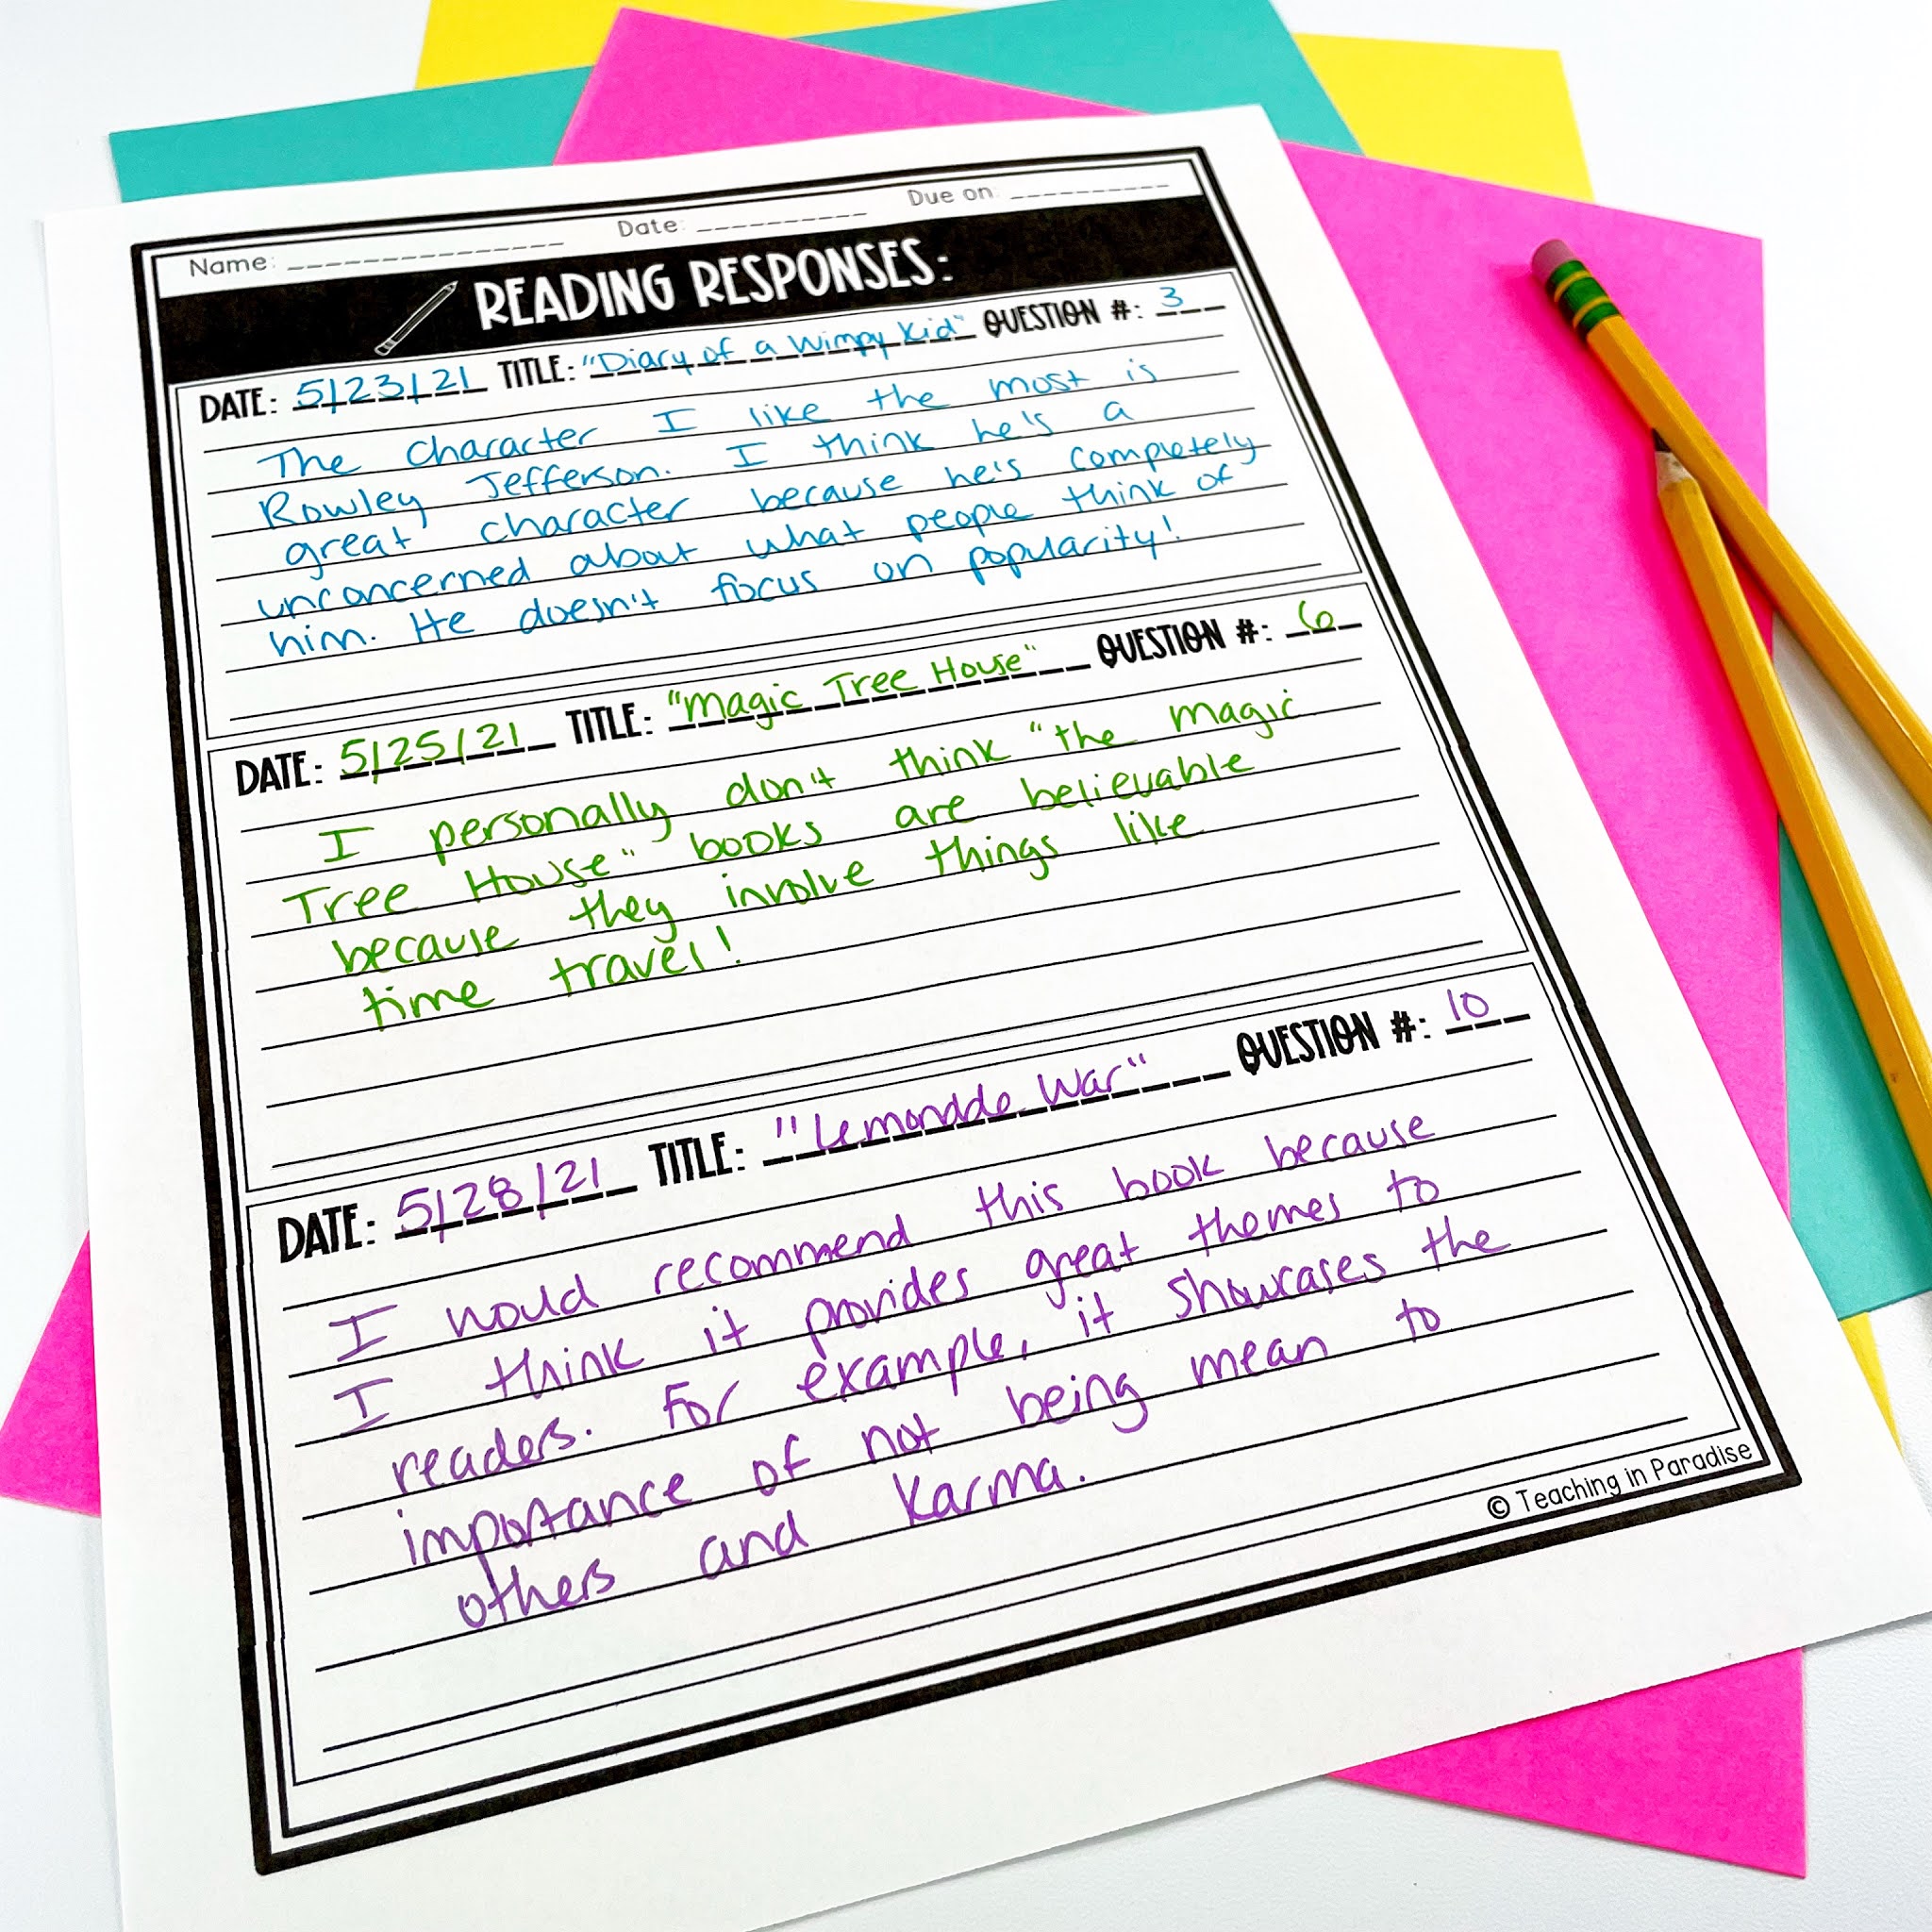 Name: Date: Due on:
READING RESPONSES:
DATE: 5/23/21 TITLE: "Diary of a Wimpy Kid" QUESTION #: 3
The character I like the most is
Rowley Jefferson. I think he's a
great character because he's completely
unconcerned about what people think of
him. He doesn't focus on popularity!
DATE: 5/25/21 TITLE: "Magic Tree House" QUESTION #: 6
I personally don't think "the magic
Tree House" books are believable
because they involve things like
time travel!
DATE: 5/28/21 TITLE: "Lemonade War" QUESTION #: 10
I would recommend this book because
I think it provides great themes to
readers. For example, it showcases the
importance of not being mean to
others and karma.
© Teaching in Paradise